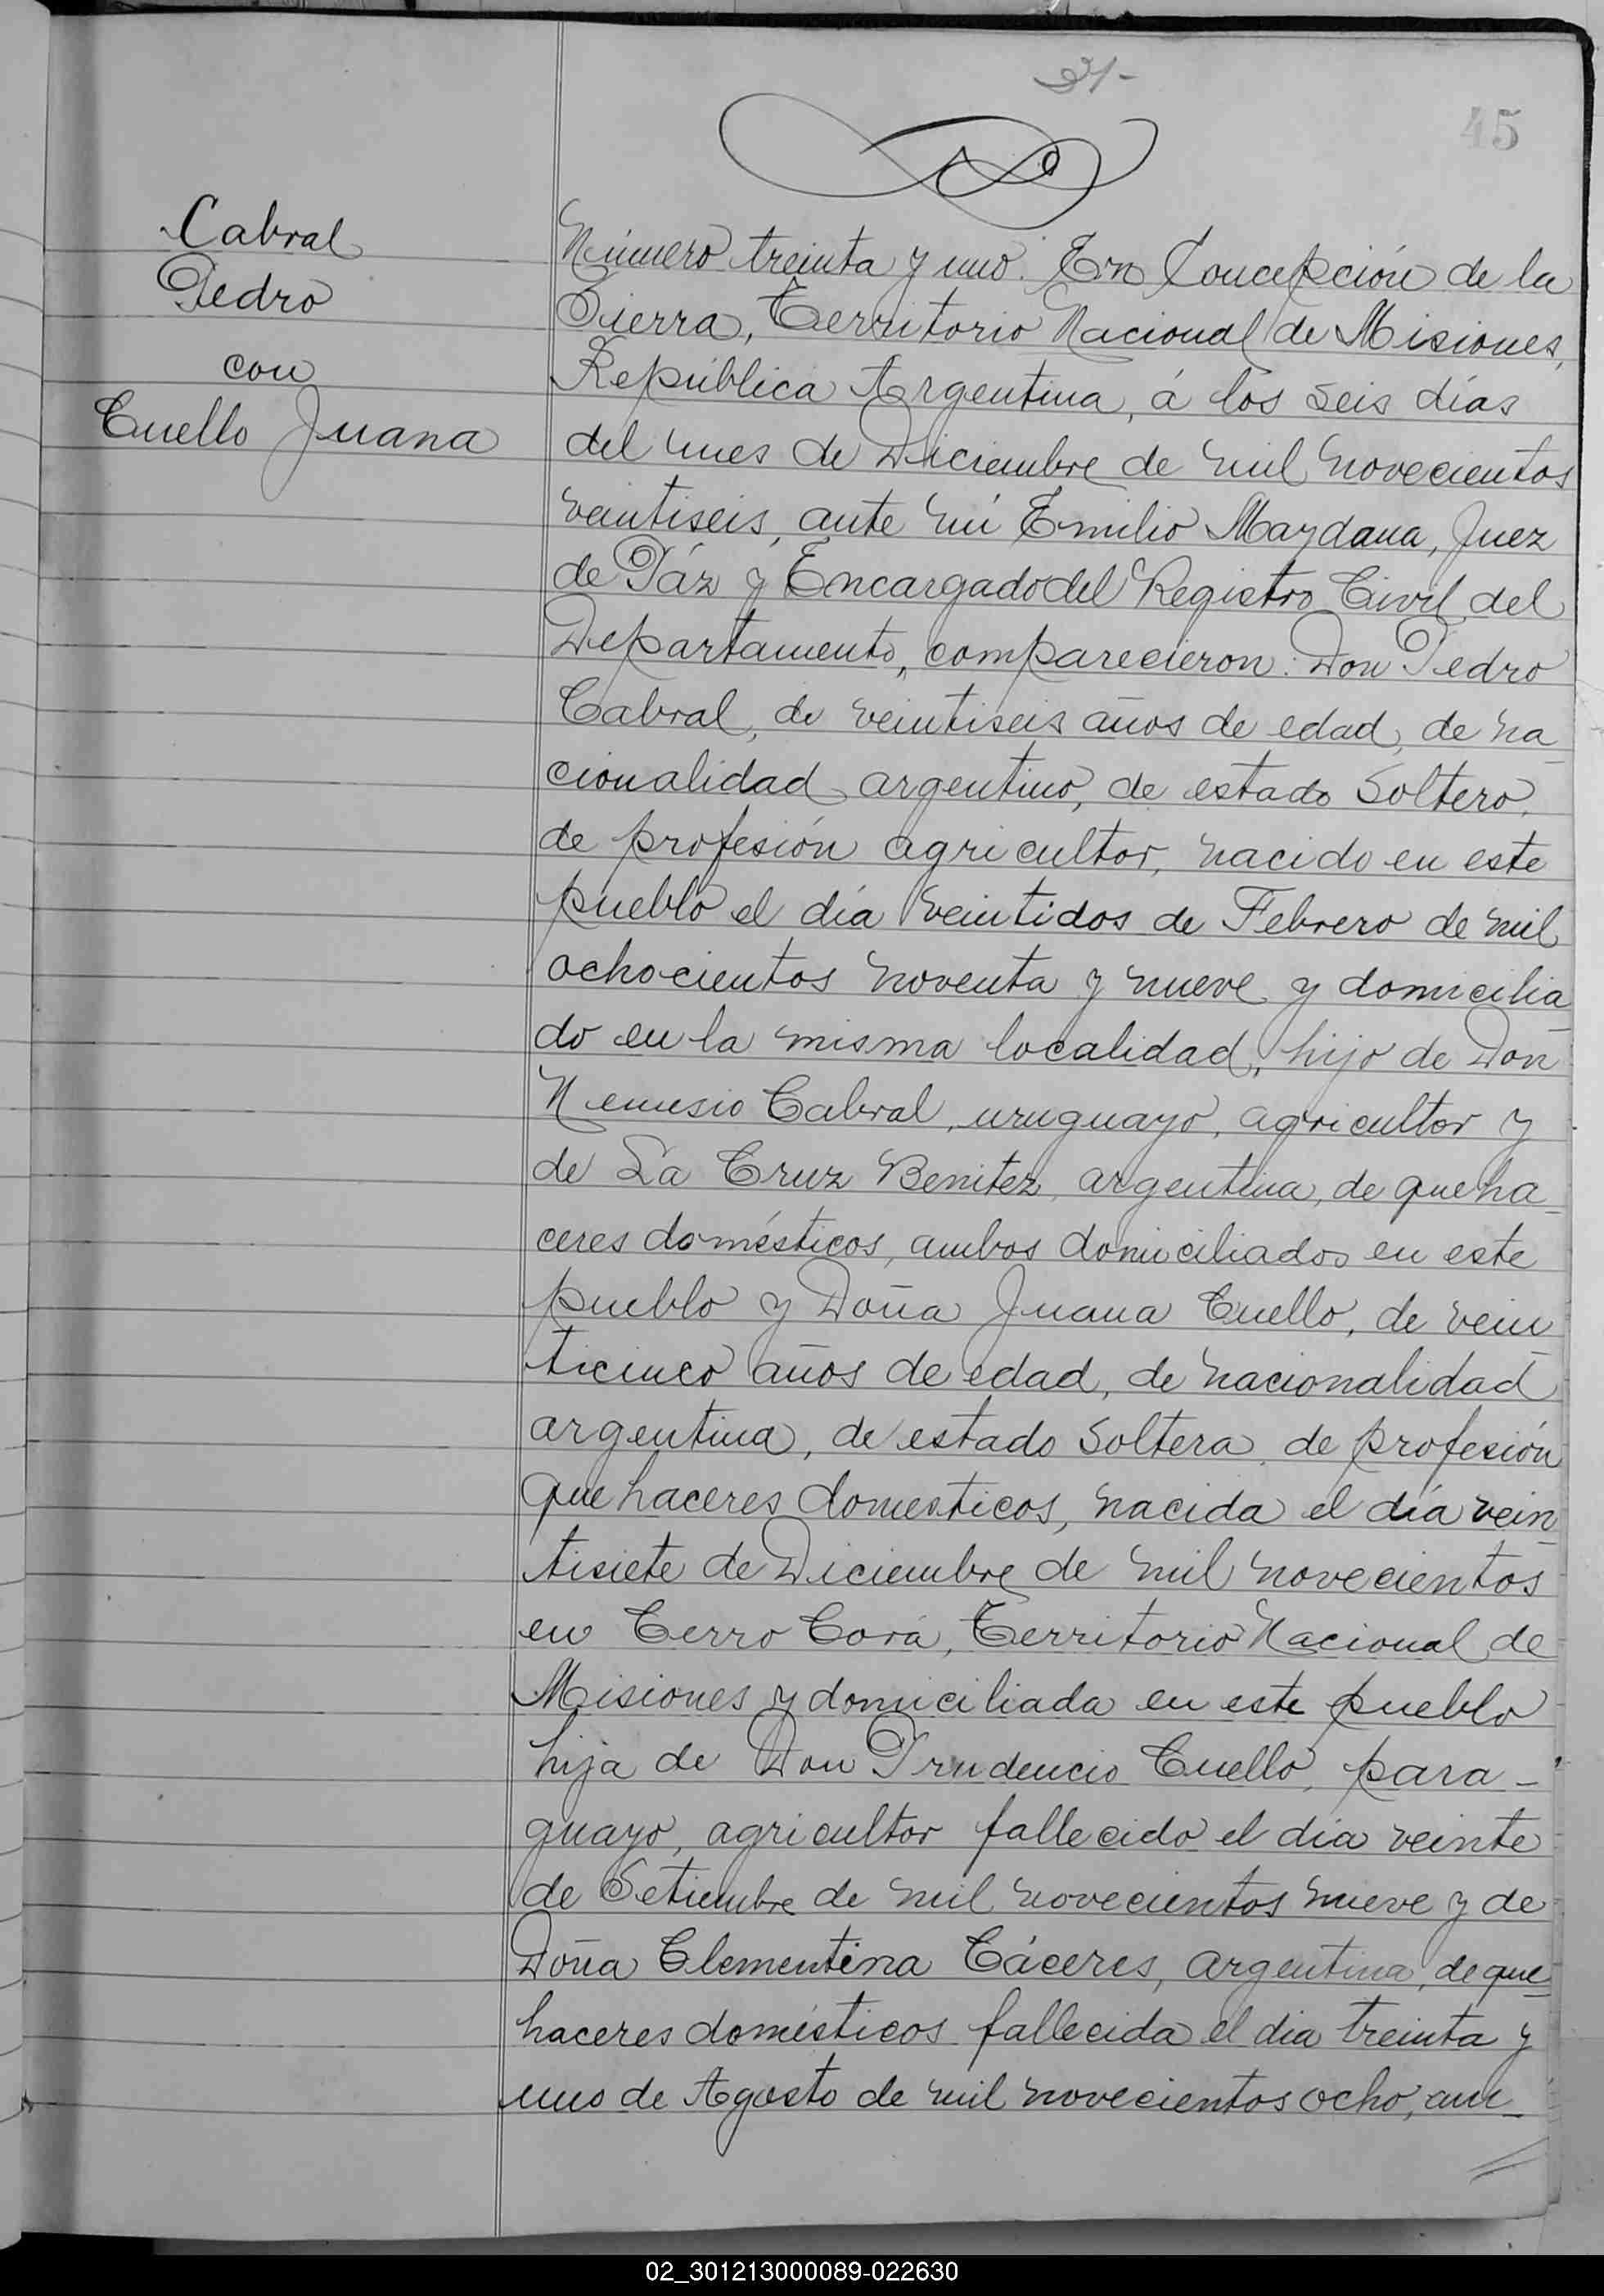 31-
45
Cabral
Pedro
con
Cuello Juana
Número treinta y uno. En Concepción de la
Sierra, Territorio Nacional de Misiones,
República Argentina, á los seis días
del mes de Diciembre de mil novecientos
veintiseis, ante mí Emilio Maydana, Juez
de Páz y Encargado del Registro Civil del
Departamento, comparecieron: Don Pedro
Cabral, de veintiseis años de edad, de na_
cionalidad argentino, de estado soltero,
de profesión agricultor, nacido en este
pueblo el día veintidos de Febrero de mil
ochocientos noventa y nueve y domicilia_
do en la misma localidad, hijo de Don
Nemesio Cabral, uruguayo, agricultor y
de La Cruz Benitez, argentina, de queha_
ceres domésticos, ambos domiciliados en este
pueblo y Doña Juana Cuello, de vein_
ticinco años de edad, de nacionalidad
argentina, de estado soltera, de profesión
quehaceres domesticos, nacida el día vein_
tisiete de Diciembre de mil novecientos
en Cerro Corá, Territorio Nacional de
Misiones y domiciliada en este pueblo
hija de Don Prudencio Cuello, para-
guayo, agricultor fallecido el día veinte
de Setiembre de mil novecientos nueve y de
Doña Clementina Cáceres, argentina, de que_
haceres domésticos fallecida el dia treinta y
uno de Agosto de mil novecientos ocho, am_
02_301213000089-022630